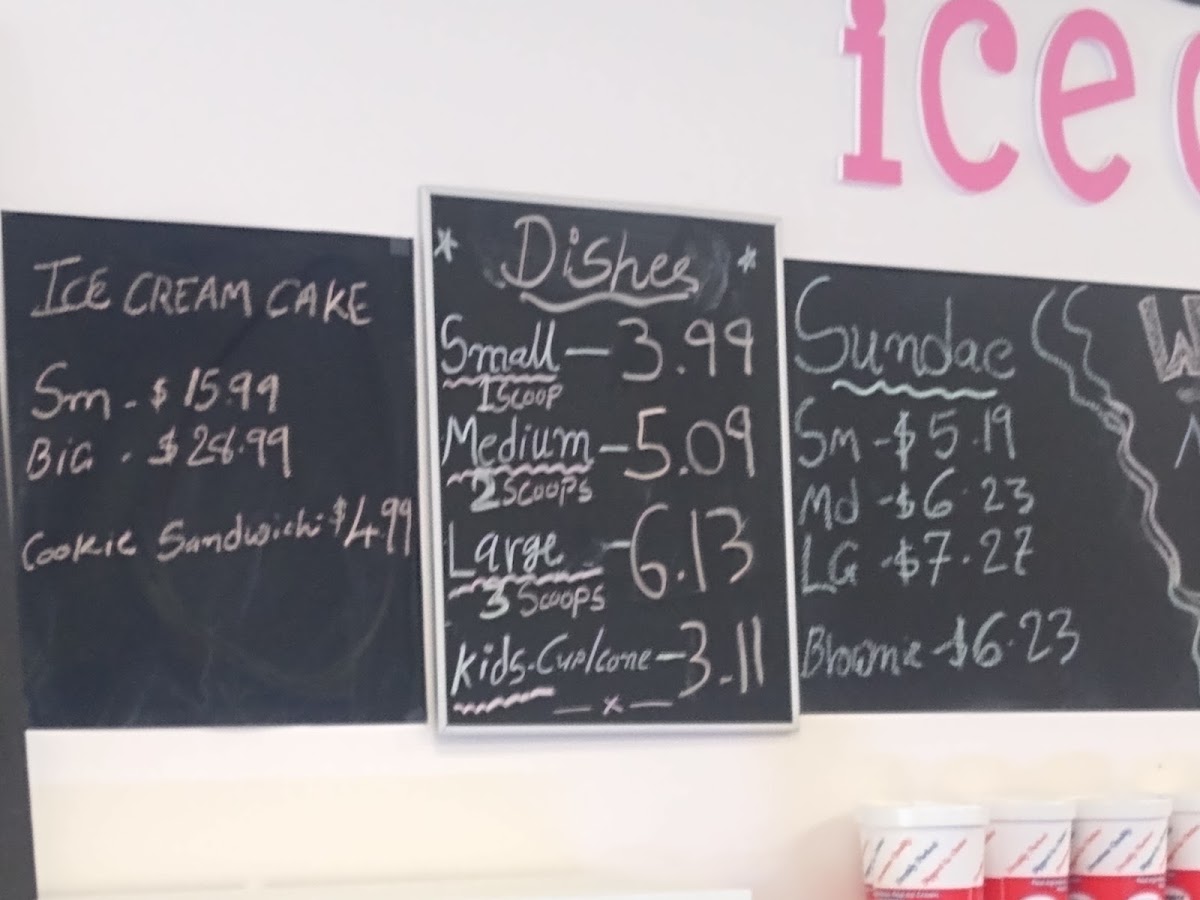 ice
ICE CREAM CAKE
Sm - $ 15.99
BIG - $28.99
Cookie Sandwich - $4.99
Dishes
Small — 3.99
1 SCOOP
Medium — 5.09
2 SCOOPS
Large — 6.13
3 SCOOPS
Kids-Cup/cone — 3.11
— x —
Sundae
Sm - $5.19
Md - $6.23
LG - $7.27
Brownie - $6.23